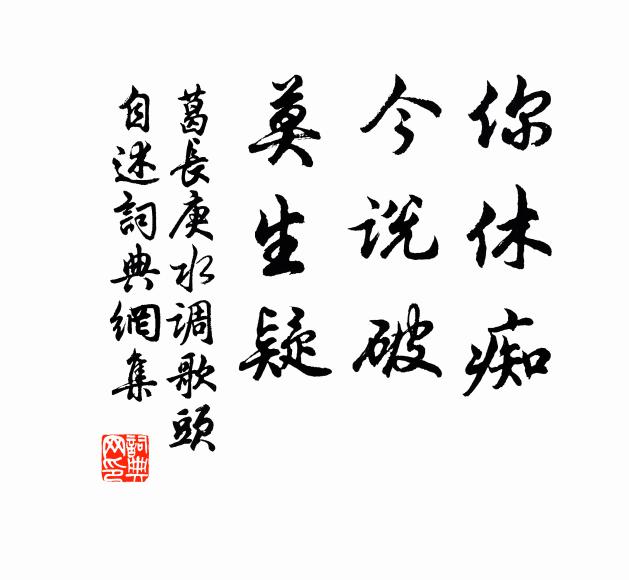 你休痴
今说破
莫生疑
葛長庚水调歌頭
自述詞典網集
詞典
网印